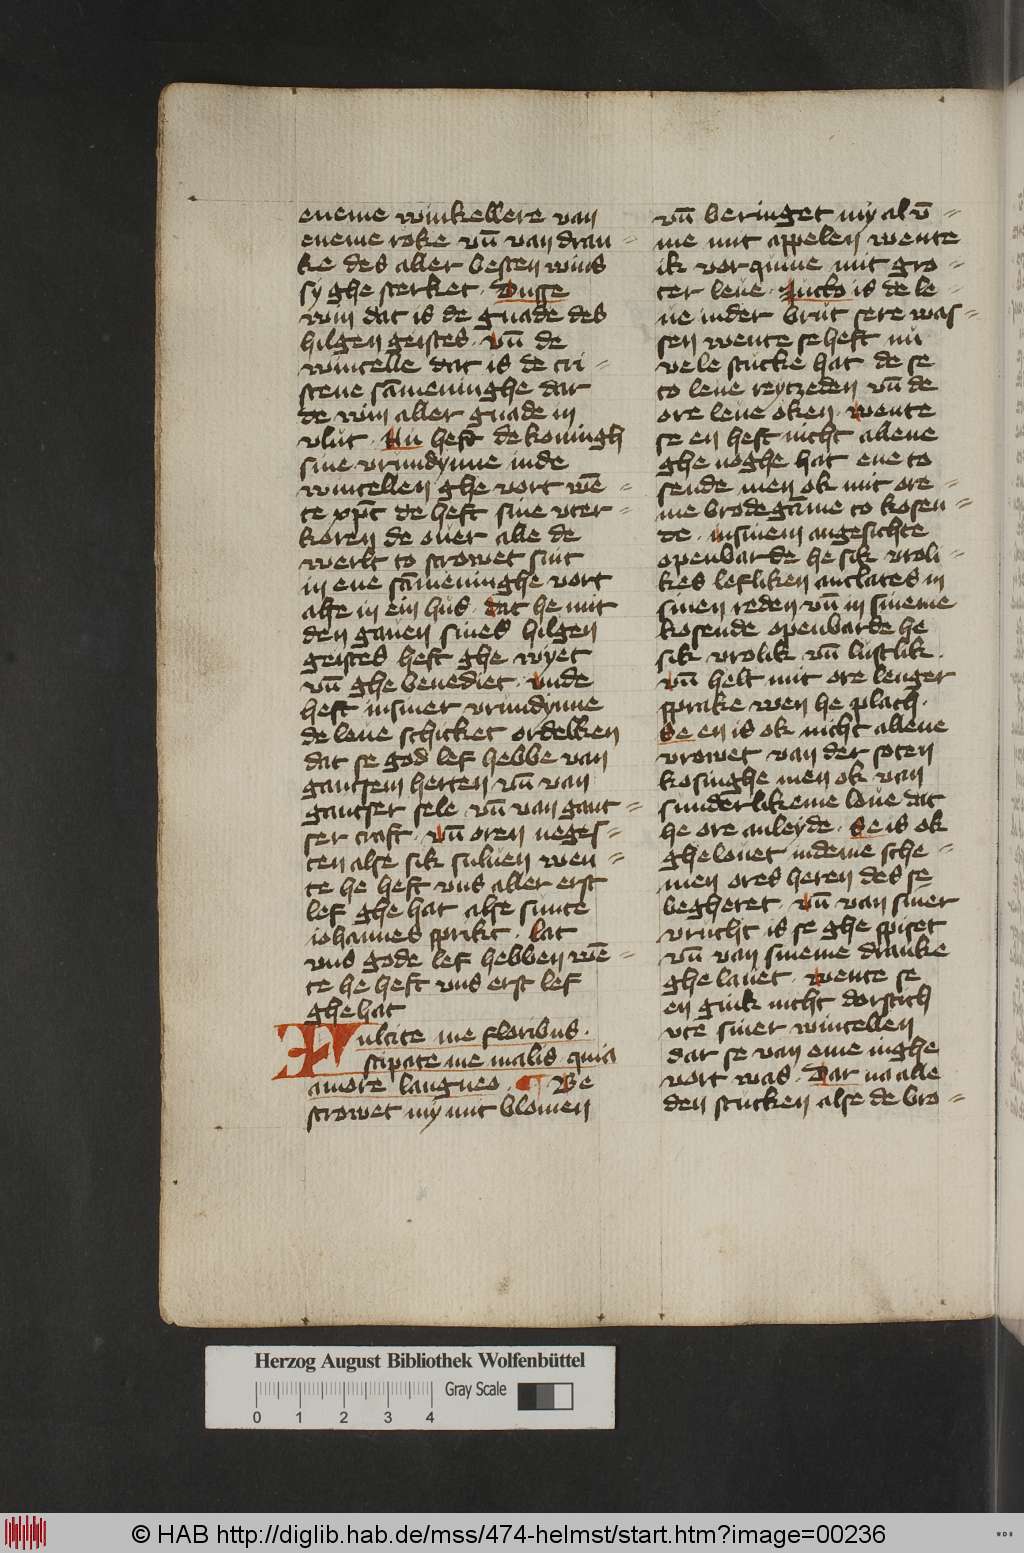 eneme winkellere van
eneme roke vn̄ van dran=
ke des aller besten wins
sy ghe sterket. Dusse
win dat is de gnade des
hilgen geistes. vn̄ de
wincelle dat is de cri=
stene sāmeninghe dar
de win aller gnade in
vlut. Nu heft de koningh
sine vrundynne in de
wincellen ghe vort wē=
te xp̄c de heft sine vter=
koren de ouer alle de
werlt to strowet sint
in ene sāmeninghe vort
alse in ein hus. dat he mit
den gauen sines hilgen
geistes heft ghe wyet
vn̄ ghe benediet. vnde
heft in siner vrundynne
de leue schicket ordelken
dat se god lef hebbe van
gantzem herten vn̄ van
gantser sele vn̄ van gant=
ser craft. vn̄ oren neges=
ten alse sik suluen wen=
te he heft vns aller erst
lef ghe hat alse sunte
iohannes sprikt. lat
vns gode lef hebben wē=
te he heft vns erst lef
ghe hat
Fulcite me floribus.
stipate me malis quia
amore langueo. ¶ Be
strowet my mit blomen
vn̄ beringet my al v̄=
me mit appelen wente
ik vorquine mit gro=
ter leue. Jucko is de le=
ue in der brut sere was=
sen wente se heft nu
vele stucke hat de se
to leue reytzeden vn̄ de
ore leue oken. wente
se en heft nicht allene
ghe noghe hat ene to
sende men ok mit ore=
me brodegāme to kosen=
de. in sinem angesichte
openbarde he sik vroli=
kes lefliken antlates in
sinen reden vn̄ in sineme
kosende openbarde he
sik vrolik vn̄ lustlik.
vn̄ helt mit ore lenger
sprake wen he plach.
Se en is ok nicht allene
vrowet van der soten
kosinghe men ok van
sunderlikeme loue dat
he ore anleyde. Se is ok
ghe louet in deme sche=
men ores heren des se
begheret. vn̄ van siner
vrucht is se ghe spiset
vn̄ van sineme dranke
ghe lauet. wente se
en gink nicht dorstich
vte siner wincellen
dar se van eme inghe
vort was. Dar na alle
den stucken alse de bro=
Herzog August Bibliothek Wolfenbüttel
Gray Scale
0 1 2 3 4
© HAB http://diglib.hab.de/mss/474-helmst/start.htm?image=00236